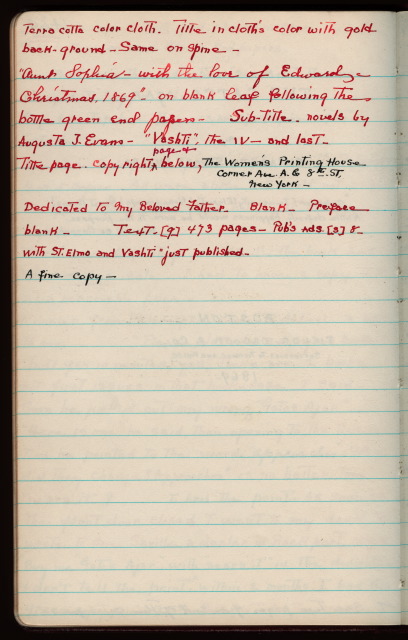 Terra cotta color cloth. Title in cloth's color with gold
back-ground - Same on spine -
"Aunt Sophia - with the love of Edward -
Christmas, 1869" - on blank leaf following the
bottle green end papers - Sub-Title. novels by
Augusta J. Evans - "Vashti", the IV - and last -
page &
Title page. copyright, below, The Women's Printing House
Corner Ave. A. & 8th ST.
New York -
Dedicated to My Beloved Father. Blank - Preface
blank - Text - [9] 473 pages - Pub's Ads. [5] 8 -
with ST. Elmo and Vashti "just published -
A fine copy -